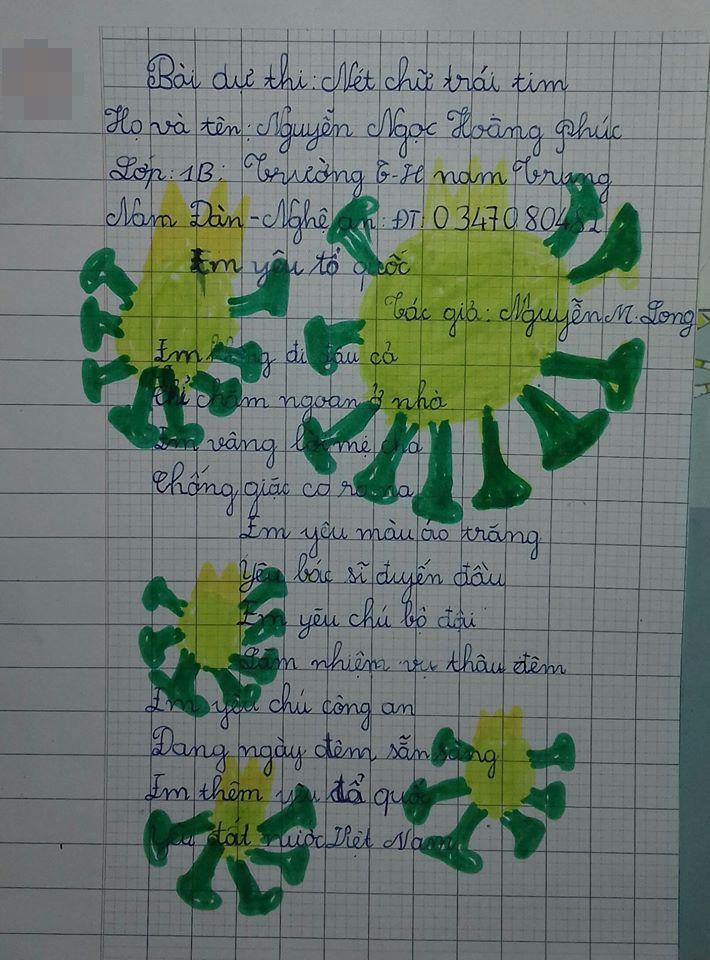 Bài dự thi: Nét chữ trái tim
Họ và tên: Nguyễn Ngọc Hoàng Phúc
Lớp: 1B: Trường T-H nam Trung
Nam Đàn - Nghệ an: ĐT: 0347080482
Em yêu tổ quốc
Tác giả: Nguyễn M. Long
Em không đi đâu cả
Chỉ chăm ngoan ở nhà
Em vâng lời mẹ cha
Chống giặc co ro na
Em yêu màu áo trắng
Yêu bác sĩ duyến đầu
Em yêu chú bộ đội
Làm nhiệm vụ thâu đêm
Em yêu chú công an
Đang ngày đêm sẵn sàng
Em thêm yêu tổ quốc
Yêu đất nước Việt Nam